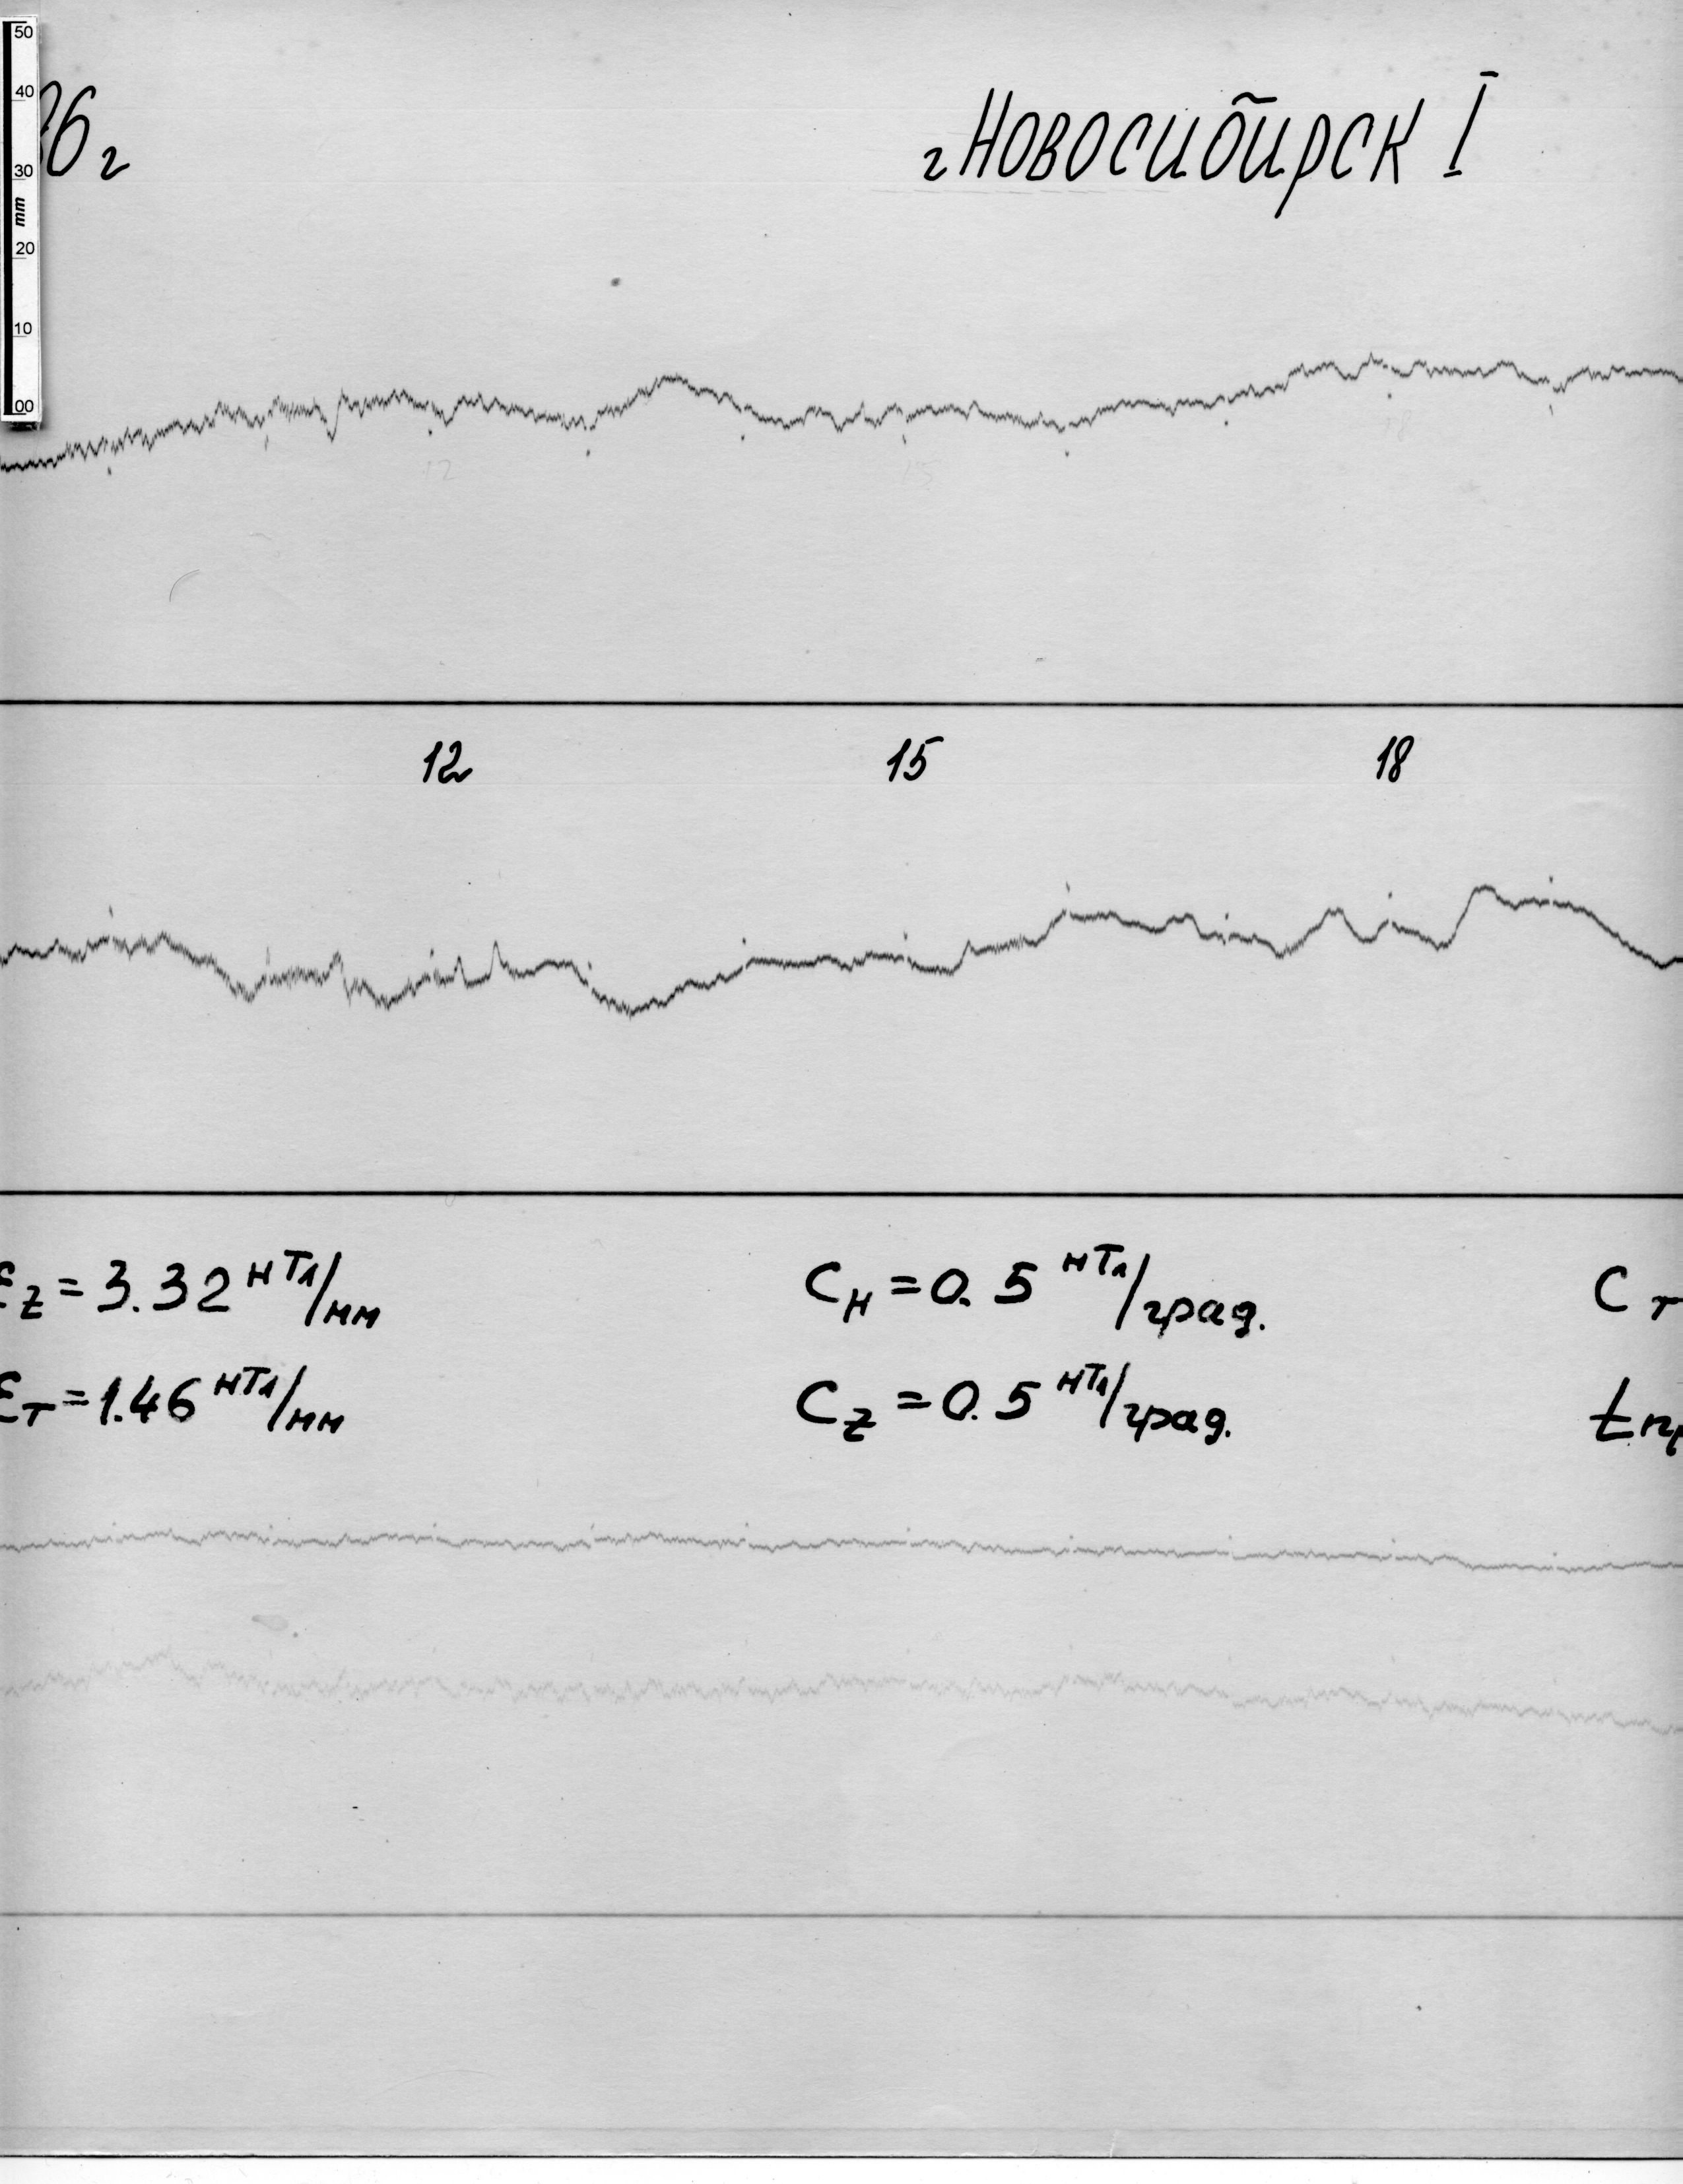 50
40
30
mm
20
10
00
86 г
г Новосибирск I
12 15 18
12 15 18
εz = 3.32 нТл/мм Cн = 0.5 нТл/град. Cт
εт = 1.46 нТл/мм Cz = 0.5 нТл/град.